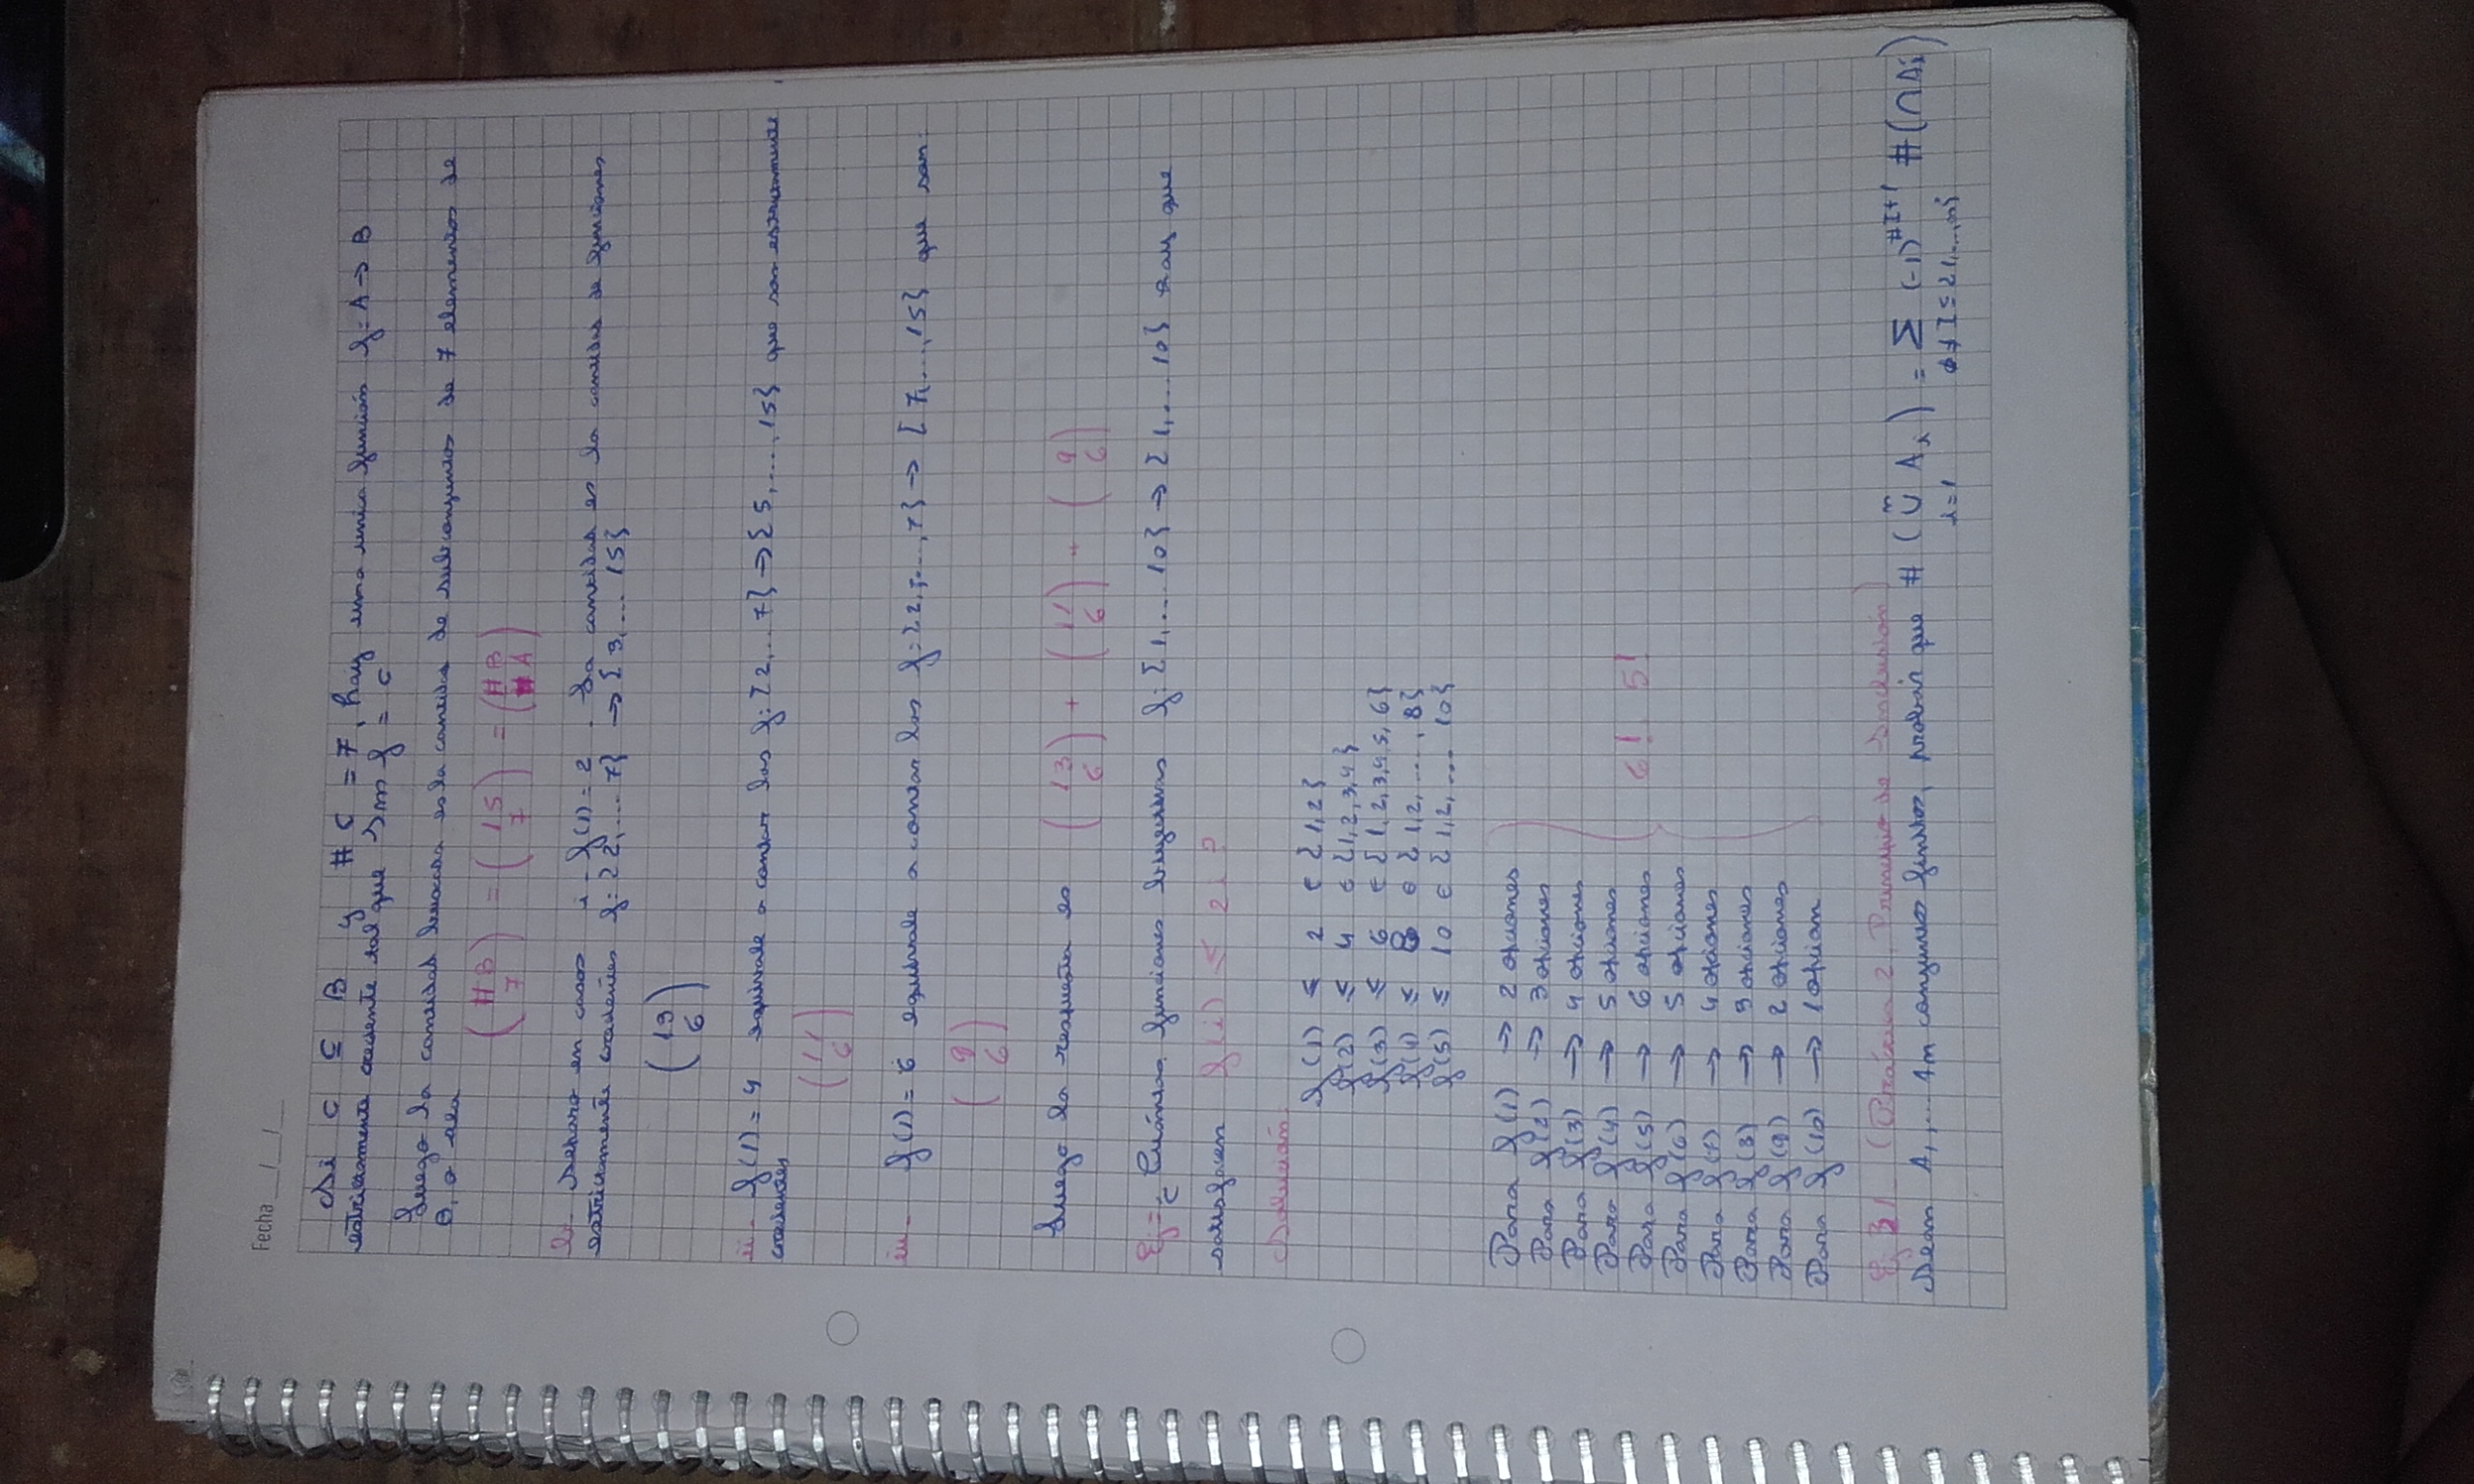 Fecha __/__/__
Si C ⊆ B y # C = 7, hay una unica función f: A → B
estrictamente creciente tal que Im f = C
Luego la cantidad buscada es la cantidad de subconjuntos de 7 elementos de
B, o sea
(#B 7) = (15 7) = (#B #A)
b- Separo en casos i- f(1) = 2. La cantidad es la cantidad de funciones
estrictamente crecientes f: {2, ... 7} → {3, ... 15}
(13 6)
ii- f(1) = 4 equivale a contar las f: {2, ... 7} → {5, ..., 15} que son estrictamente
crecientes
(11 6)
iii- f(1) = 6 equivale a contar las f: {2, ..., 7} → {7, ..., 15} que son:
(9 6)
Luego la respuesta es (13 6) + (11 6) + (9 6)
Ej = ¿Cuántas funciones biyectivas f: {1, ... 10} → {1, ... 10} hay que
satisfacen f(i) ≤ 2i ?
Solución:
f(1) ≤ 2 ∈ {1,2}
f(2) ≤ 4 ∈ {1,2,3,4}
f(3) ≤ 6 ∈ {1,2,3,4,5,6}
f(4) ≤ 8 ∈ {1,2, ..., 8}
f(5) ≤ 10 ∈ {1,2, ... 10}
Para f(1) → 2 opciones
Para f(2) → 3 opciones
Para f(3) → 4 opciones
Para f(4) → 5 opciones
Para f(5) → 6 opciones 6! 5!
Para f(6) → 5 opciones
Para f(7) → 4 opciones
Para f(8) → 3 opciones
Para f(9) → 2 opciones
Para f(10) → 1 opcion
Ej 31 (Práctica 2, Principio de Inclusión)
Sean A₁, ... Aₙ conjuntos finitos, probar que # (⋃ⁿᵢ₌₁ Aᵢ) = Σ ∅≠I⊆{1,...,n} (-1)^(#I+1) #(∩Aᵢ)